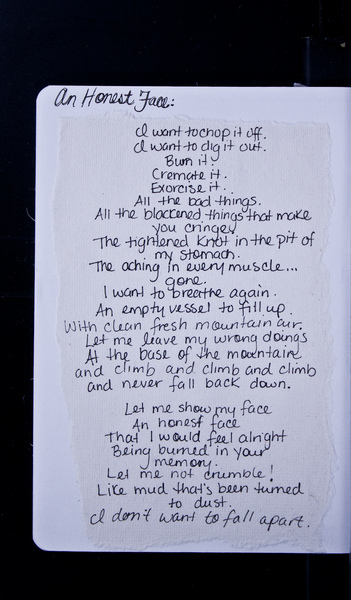 An Honest Face:
I want to chop it off.
I want to dig it out.
Burn it.
Cremate it.
Exorcise it.
All the bad things.
All the blackened things that make
you cringe.
The tightened knot in the pit of
my stomach.
The aching in every muscle...
gone.
I want to breathe again.
An empty vessel to fill up.
With clean fresh mountain air.
Let me leave my wrong doings
At the base of the mountain
and climb and climb and climb
and never fall back down.
Let me show my face
An honest face
That I would feel alright
Being burned in your
memory.
Let me not crumble!
Like mud that's been turned
to dust.
I don't want to fall apart.